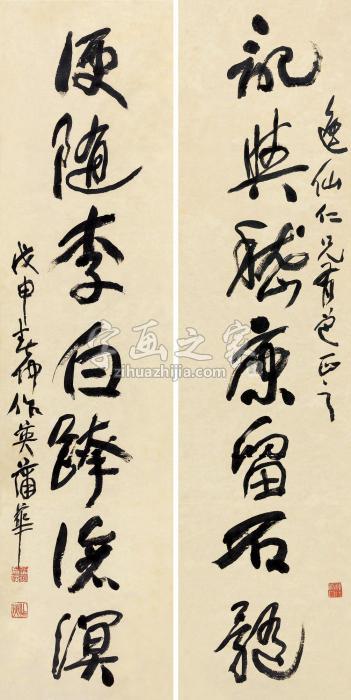 逸仙仁兄有道正之
記與嵇康留石髓
便随李白跨滄溟
戊申春仲作英蒲華
字画之家
zihuazhijia.com